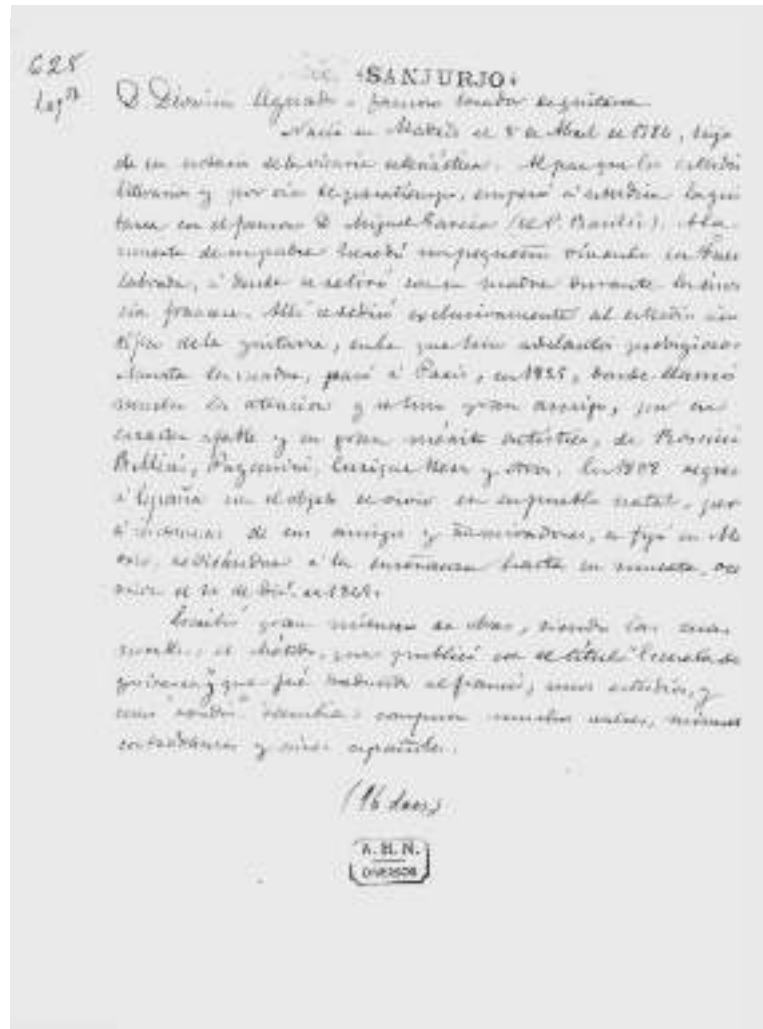 625
Leg.º
SANJURJO
D. Dionisio Aguado - famoso tocador de guitarra
Nació en Madrid el 8 de Abril de 1784, hijo
de un notario de la vicaría eclesiástica. Al par que los estudios
literarios y por vía de pasatiempo, empezó a estudiar la gui
tarra con el famoso D. Miguel García (el P. Basilio). A la
muerte de su padre heredó un pequeño vínculo en Fuen
labrada, a donde se retiró con su madre durante la inva
sión francesa. Allí se dedicó exclusivamente al estudio
de la guitarra, en la que hizo adelantos prodigiosos
Muerta su madre, pasó a París, en 1825, donde llamó
mucho la atención y se hizo gran amigo, por su
carácter afable y su gran mérito artístico, de Rossini
Bellini, Paganini, Enrique Herz y otros. En regresó
a España con el objeto de vivir en su pueblo natal, pero
a instancias de sus amigos y admiradores, se fijó en Ma
drid, dedicándose a la enseñanza hasta su muerte, ocu
rrida el de Dic.
Escribió gran número de obras, siendo las mas
el método, que publicó con el título Escuela de
guitarra y que fué traducido al francés, unos estudios, y
unos rondós compuso muchos valses, minués
contradanzas y aires españoles.
(16 docs)
A. H. N.
DIVERSOS